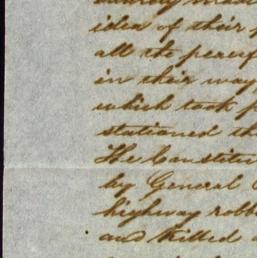 idea of their
all the peacef
in their way
which took p
stationed th
The Constitu
by General
highway robb
and killed a